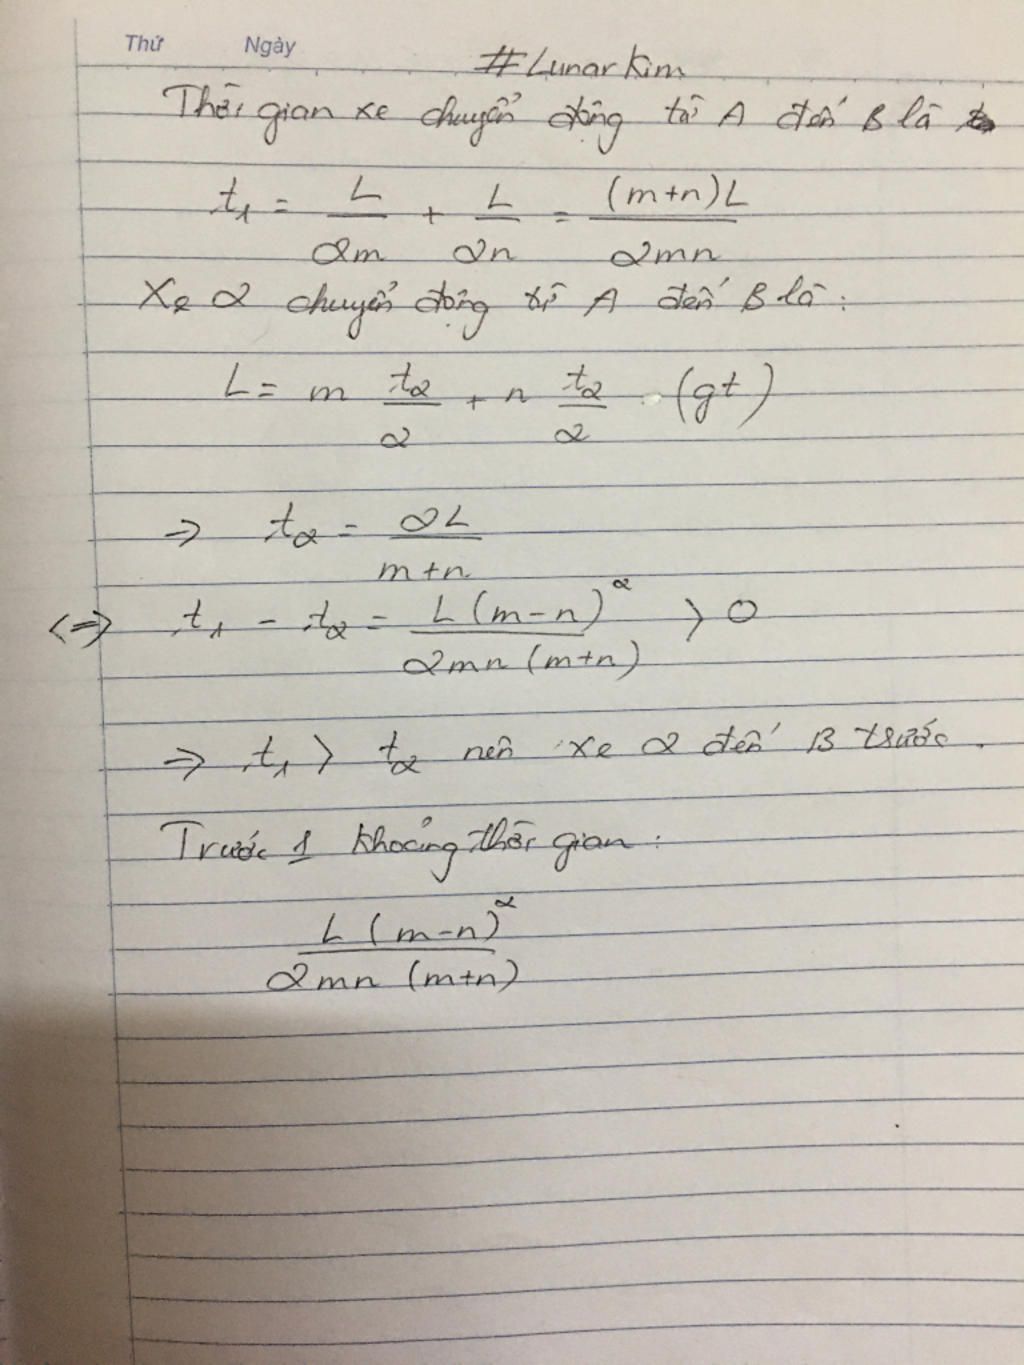 Thứ Ngày
#LunarKim
Thời gian xe chuyển động từ A đến B là
t₁ = L/2m + L/2n = (m+n)L/2mn
Xe 2 chuyển động từ A đến B là:
L = m t₂/2 + n t₂/2 (gt)
=> t₂ = 2L/m+n
<=> t₁ - t₂ = L(m-n)²/2mn(m+n) > 0
=> t₁ > t₂ nên xe 2 đến B trước.
Trước 1 khoảng thời gian:
L(m-n)²/2mn(m+n)